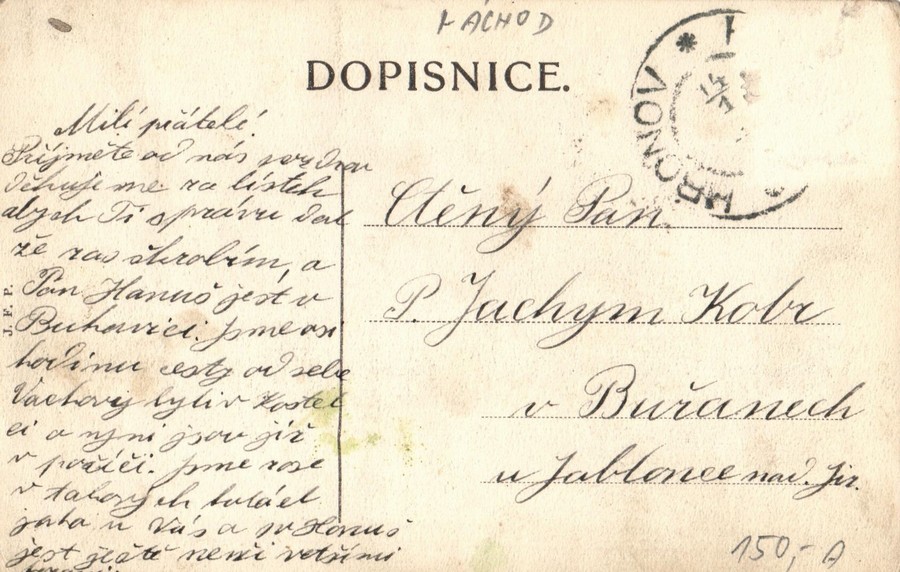 NÁCHOD
DOPISNICE.
HRONOV
Milí přátelé!
Přijměte od nás pozdrav
děkuji me za lístek
abych Ti správu dal
že zas škrobím, a
Pan Hanuš jest v
Buhavici. jsme asi
hodinu cesty od sebe
Váchovy byli v Kostel
ci a nyni jsou již
v poříčí. jsme zase
v takových
jako u Vás a p Hanuš
jest ještě
Ctěný Pan
P. Jachym Kobr
v Buřanech
u Jablonce nad. Jiz.
J. F. P.
150,- A